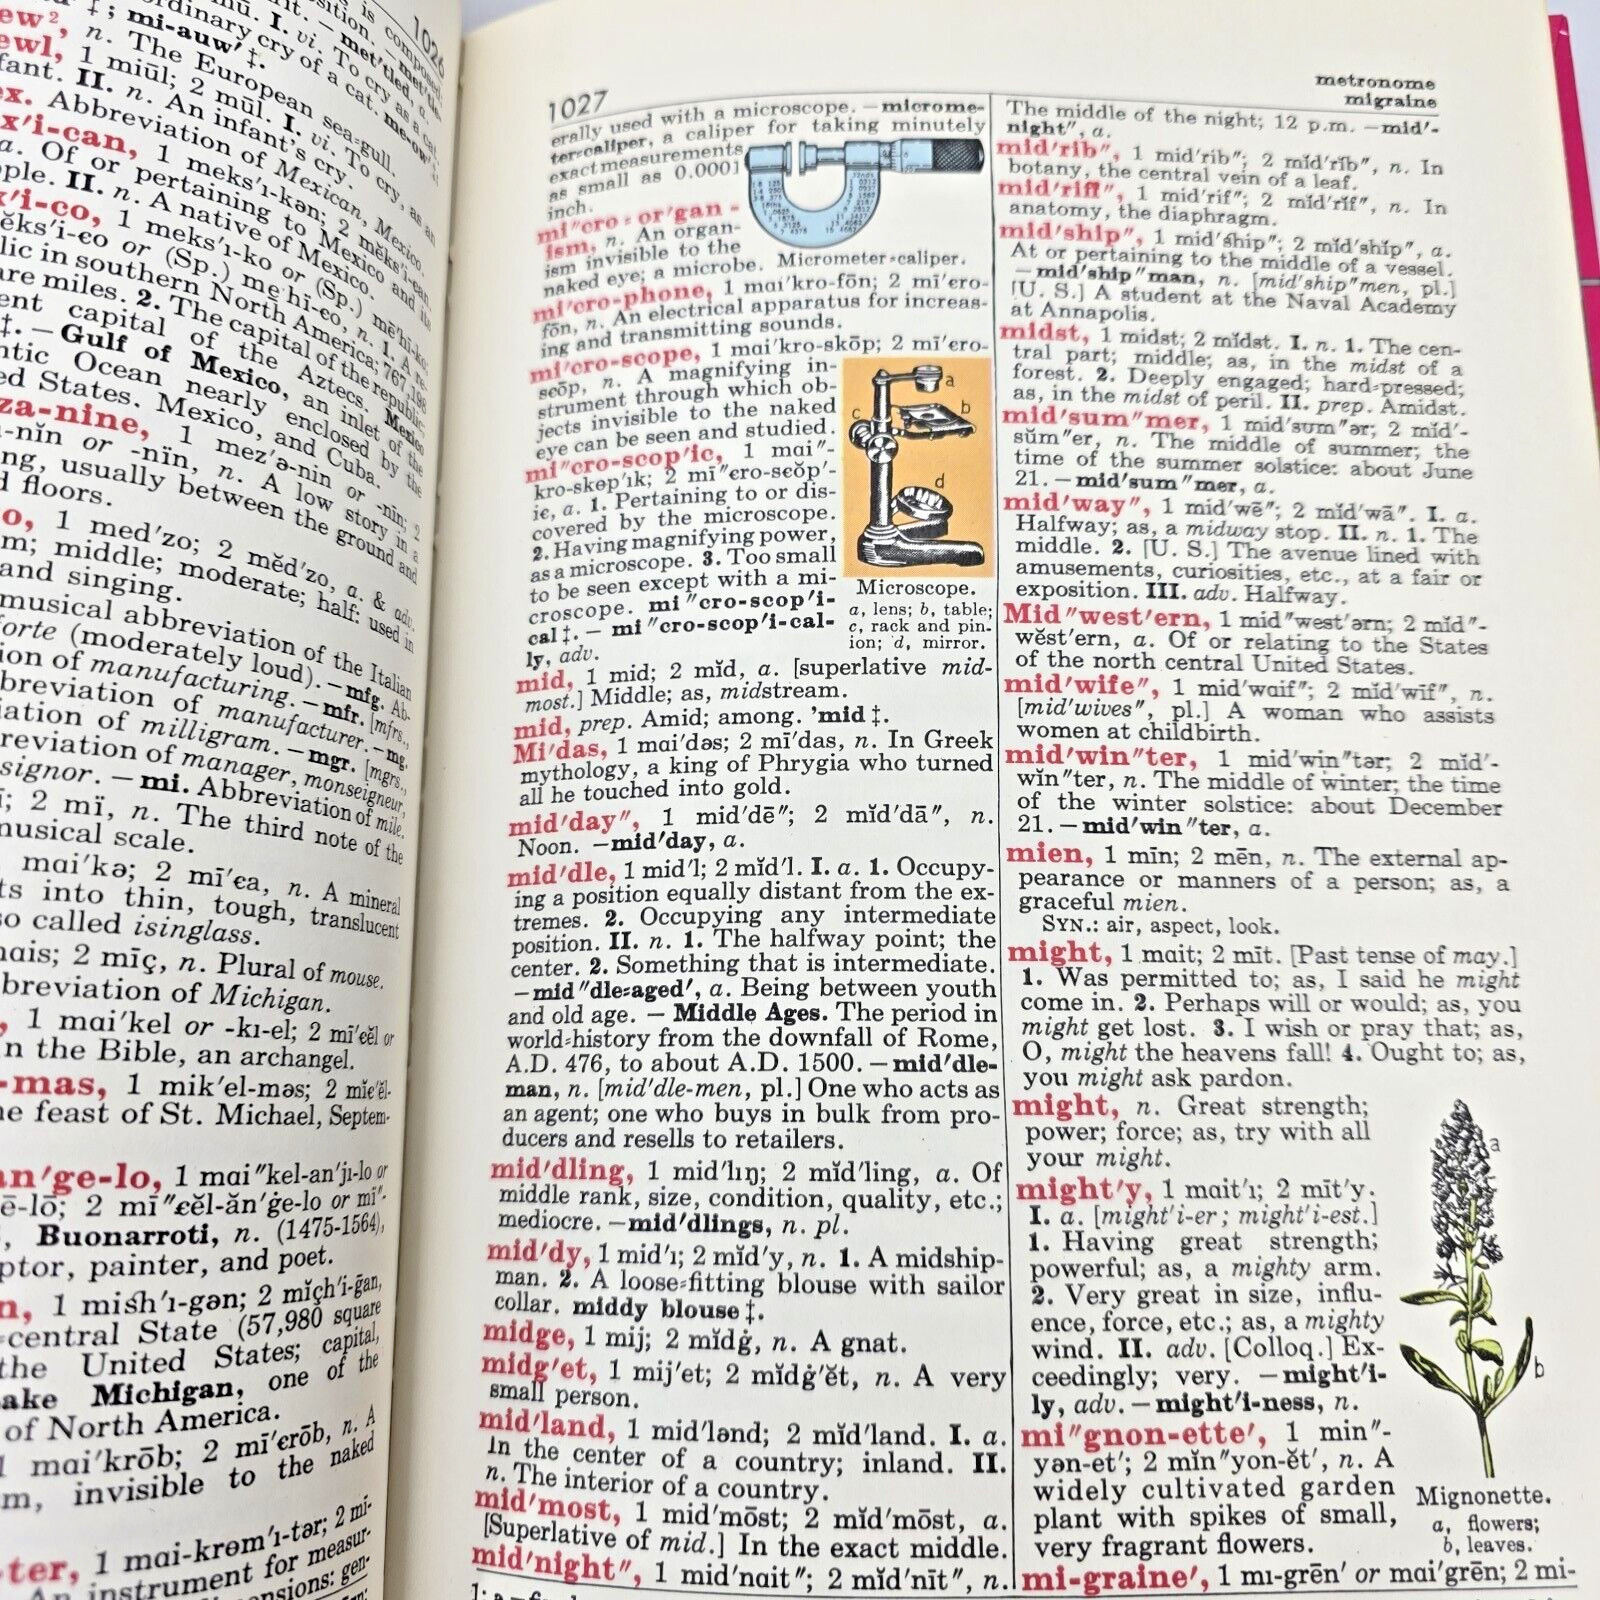 1026
ew²,
mi-auw′ ‡.
ewl, 1 miūl; 2 mūl. I. vi. To cry, as an
fant. II. n. An infant's cry.
ex. Abbreviation of Mexican, Mexico.
x′i-can, 1 meks′ɪ-kən; 2 mĕks′i-ean
a. Of or pertaining to Mexico and its
ple. II. n. A native of Mexico.
x′i-co, 1 meks′ɪ-ko or (Sp.) mē′hi-ko;
ĕks′i-eo or (Sp.) me′hī-eo, n. 1. A re-
lic in southern North America; 767,198
are miles. 2. The capital of the republic,
ent capital of the Aztecs. Mexico
‡. — Gulf of Mexico, an inlet of the
ntic Ocean nearly enclosed by the
ed States. Mexico, and Cuba.
za-nine, 1 mez′ə-nin or -nīn; 2
-nĭn or -nīn, n. A low story in a
ng, usually between the ground and
d floors.
o, 1 med′zo; 2 mĕd′zo, a. & adv.
m; middle; moderate; half: used in
and singing.
musical abbreviation of the Italian
forte (moderately loud). —mfg. Ab-
ion of manufacturing. —mfr. [mfrs.,
breviation of manufacturer. —mg.
iation of milligram. —mgr. [mgrs.,
reviation of manager, monseigneur,
signor. —mi. Abbreviation of mile.
ī; 2 mï, n. The third note of the
musical scale.
mɑi′kə; 2 mī′ea, n. A mineral
ts into thin, tough, translucent
so called isinglass.
mɑis; 2 mīç, n. Plural of mouse.
breviation of Michigan.
, 1 mɑi′kel or -kɪ-el; 2 mī′eĕl or
n the Bible, an archangel.
-mas, 1 mik′el-məs; 2 mĭe′ĕl-
he feast of St. Michael, Septem-
an′ge-lo, 1 mɑi″kel-an′jɪ-lo or
-ē-lō; 2 mī″eĕl-ăn′ġe-lo or mï″-
, Buonarroti, n. (1475-1564),
ptor, painter, and poet.
n, 1 mish′ɪ-gən; 2 mĭçh′i-g̃an,
-central State (57,980 square
the United States; capital,
ake Michigan, one of the
of North America.
1 mɑi′krōb; 2 mī′erōb, n. A
m, invisible to the naked
-ter, 1 mɑi-krem′ɪ-tər; 2 mī-
An instrument for measur-
1027
erally used with a microscope. —microme-
ter-caliper, a caliper for taking minutely
exact measurements
as small as 0.0001
inch.
Micrometer-caliper.
mi″cro-or′gan-
ism, n. An organ-
ism invisible to the
naked eye; a microbe.
mi′cro-phone, 1 mɑi′kro-fōn; 2 mī′ero-
fōn, n. An electrical apparatus for increas-
ing and transmitting sounds.
mi′cro-scope, 1 mɑi′kro-skōp; 2 mī′ero-
seōp, n. A magnifying in-
strument through which ob-
jects invisible to the naked
eye can be seen and studied.
mi″cro-scop′ic, 1 mɑi″-
kro-skɵp′ɪk; 2 mī″ero-seŏp′-
ie, a. 1. Pertaining to or dis-
covered by the microscope.
2. Having magnifying power,
as a microscope. 3. Too small
to be seen except with a mi-
croscope. mi″cro-scop′i-
cal ‡. — mi″cro-scop′i-cal-
ly, adv.
a
b
c
d
Microscope.
a, lens; b, table;
c, rack and pin-
ion; d, mirror.
mid, 1 mid; 2 mĭd, a. [superlative mid-
most.] Middle; as, midstream.
mid, prep. Amid; among. 'mid ‡.
Mi′das, 1 mɑi′dəs; 2 mī′das, n. In Greek
mythology, a king of Phrygia who turned
all he touched into gold.
mid′day″, 1 mid′dē″; 2 mĭd′dā″, n.
Noon. —mid′day, a.
mid′dle, 1 mid′l; 2 mĭd′l. I. a. 1. Occupy-
ing a position equally distant from the ex-
tremes. 2. Occupying any intermediate
position. II. n. 1. The halfway point; the
center. 2. Something that is intermediate.
—mid″dle-aged′, a. Being between youth
and old age. — Middle Ages. The period in
world-history from the downfall of Rome,
A.D. 476, to about A.D. 1500. —mid′dle-
man, n. [mid′dle-men, pl.] One who acts as
an agent; one who buys in bulk from pro-
ducers and resells to retailers.
mid′dling, 1 mid′lɪŋ; 2 mĭd′ling, a. Of
middle rank, size, condition, quality, etc.;
mediocre. —mid′dlings, n. pl.
mid′dy, 1 mid′ɪ; 2 mĭd′y, n. 1. A midship-
man. 2. A loose-fitting blouse with sailor
collar. middy blouse ‡.
midge, 1 mij; 2 mĭdġ, n. A gnat.
midg′et, 1 mij′et; 2 mĭdġ′ĕt, n. A very
small person.
mid′land, 1 mid′lənd; 2 mĭd′land. I. a.
In the center of a country; inland. II.
n. The interior of a country.
mid′most, 1 mid′mōst; 2 mĭd′mōst, a.
[Superlative of mid.] In the exact middle.
mid′night″, 1 mid′nɑit″; 2 mĭd′nīt″, n.
metronome
migraine
The middle of the night; 12 p.m. —mid′-
night″, a.
mid′rib″, 1 mid′rib″; 2 mĭd′rĭb″, n. In
botany, the central vein of a leaf.
mid′riff″, 1 mid′rif″; 2 mĭd′rĭf″, n. In
anatomy, the diaphragm.
mid′ship″, 1 mid′ship″; 2 mĭd′shĭp″, a.
At or pertaining to the middle of a vessel.
—mid′ship″man, n. [mid′ship″men, pl.]
[U. S.] A student at the Naval Academy
at Annapolis.
midst, 1 midst; 2 mĭdst. I. n. 1. The cen-
tral part; middle; as, in the midst of a
forest. 2. Deeply engaged; hard-pressed;
as, in the midst of peril. II. prep. Amidst.
mid′sum″mer, 1 mid′sʊm″ər; 2 mĭd′-
sŭm″er, n. The middle of summer; the
time of the summer solstice: about June
21. —mid′sum″mer, a.
mid′way″, 1 mid′wē″; 2 mĭd′wā″. I. a.
Halfway; as, a midway stop. II. n. 1. The
middle. 2. [U. S.] The avenue lined with
amusements, curiosities, etc., at a fair or
exposition. III. adv. Halfway.
Mid″west′ern, 1 mid″west′ərn; 2 mĭd″-
wĕst′ern, a. Of or relating to the States
of the north central United States.
mid′wife″, 1 mid′wɑif″; 2 mĭd′wīf″, n.
[mid′wives″, pl.] A woman who assists
women at childbirth.
mid′win″ter, 1 mid′win″tər; 2 mĭd′-
wĭn″ter, n. The middle of winter; the time
of the winter solstice: about December
21. —mid′win″ter, a.
mien, 1 mīn; 2 mēn, n. The external ap-
pearance or manners of a person; as, a
graceful mien.
SYN.: air, aspect, look.
might, 1 mɑit; 2 mīt. [Past tense of may.]
1. Was permitted to; as, I said he might
come in. 2. Perhaps will or would; as, you
might get lost. 3. I wish or pray that; as,
O, might the heavens fall! 4. Ought to; as,
you might ask pardon.
might, n. Great strength;
power; force; as, try with all
your might.
might′y, 1 mɑit′ɪ; 2 mīt′y.
I. a. [might′i-er; might′i-est.]
1. Having great strength;
powerful; as, a mighty arm.
2. Very great in size, influ-
ence, force, etc.; as, a mighty
wind. II. adv. [Colloq.] Ex-
ceedingly; very. —might′i-
ly, adv. —might′i-ness, n.
mi″gnon-ette′, 1 min″-
yən-et′; 2 mĭn″yon-ĕt′, n. A
widely cultivated garden
plant with spikes of small,
very fragrant flowers.
a
b
Mignonette.
a, flowers;
b, leaves.
mi-graine′, 1 mɪ-grēn′ or mɑi′grēn; 2 mi-